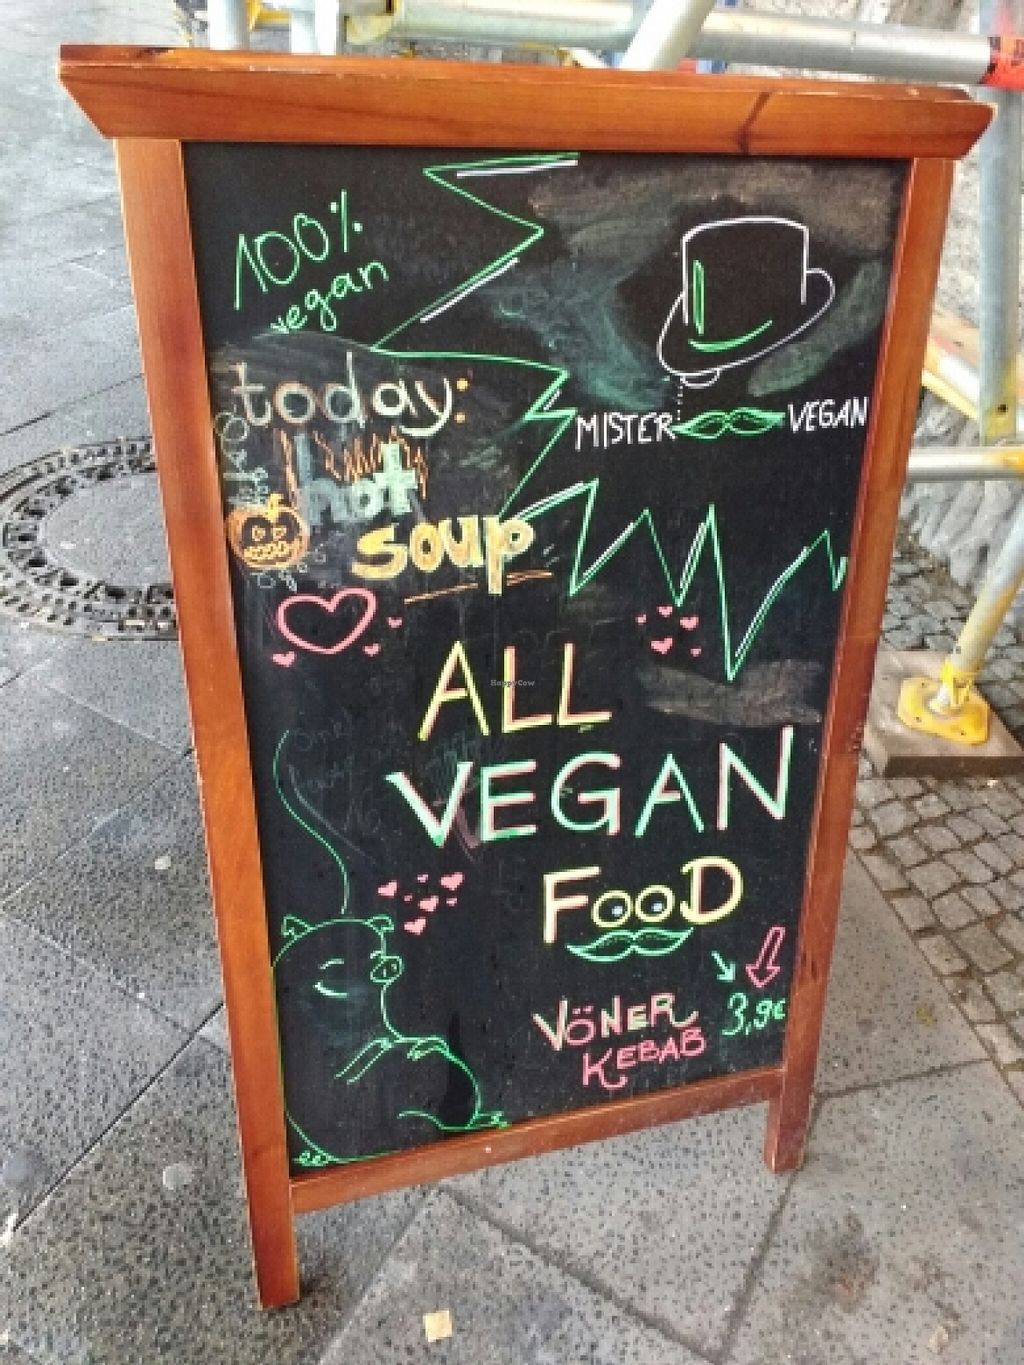 100%
vegan
today:
hot
soup
MISTER VEGAN
ALL
VEGAN
FOOD
VÖNER
KEBAB
3,9€
HappyCow